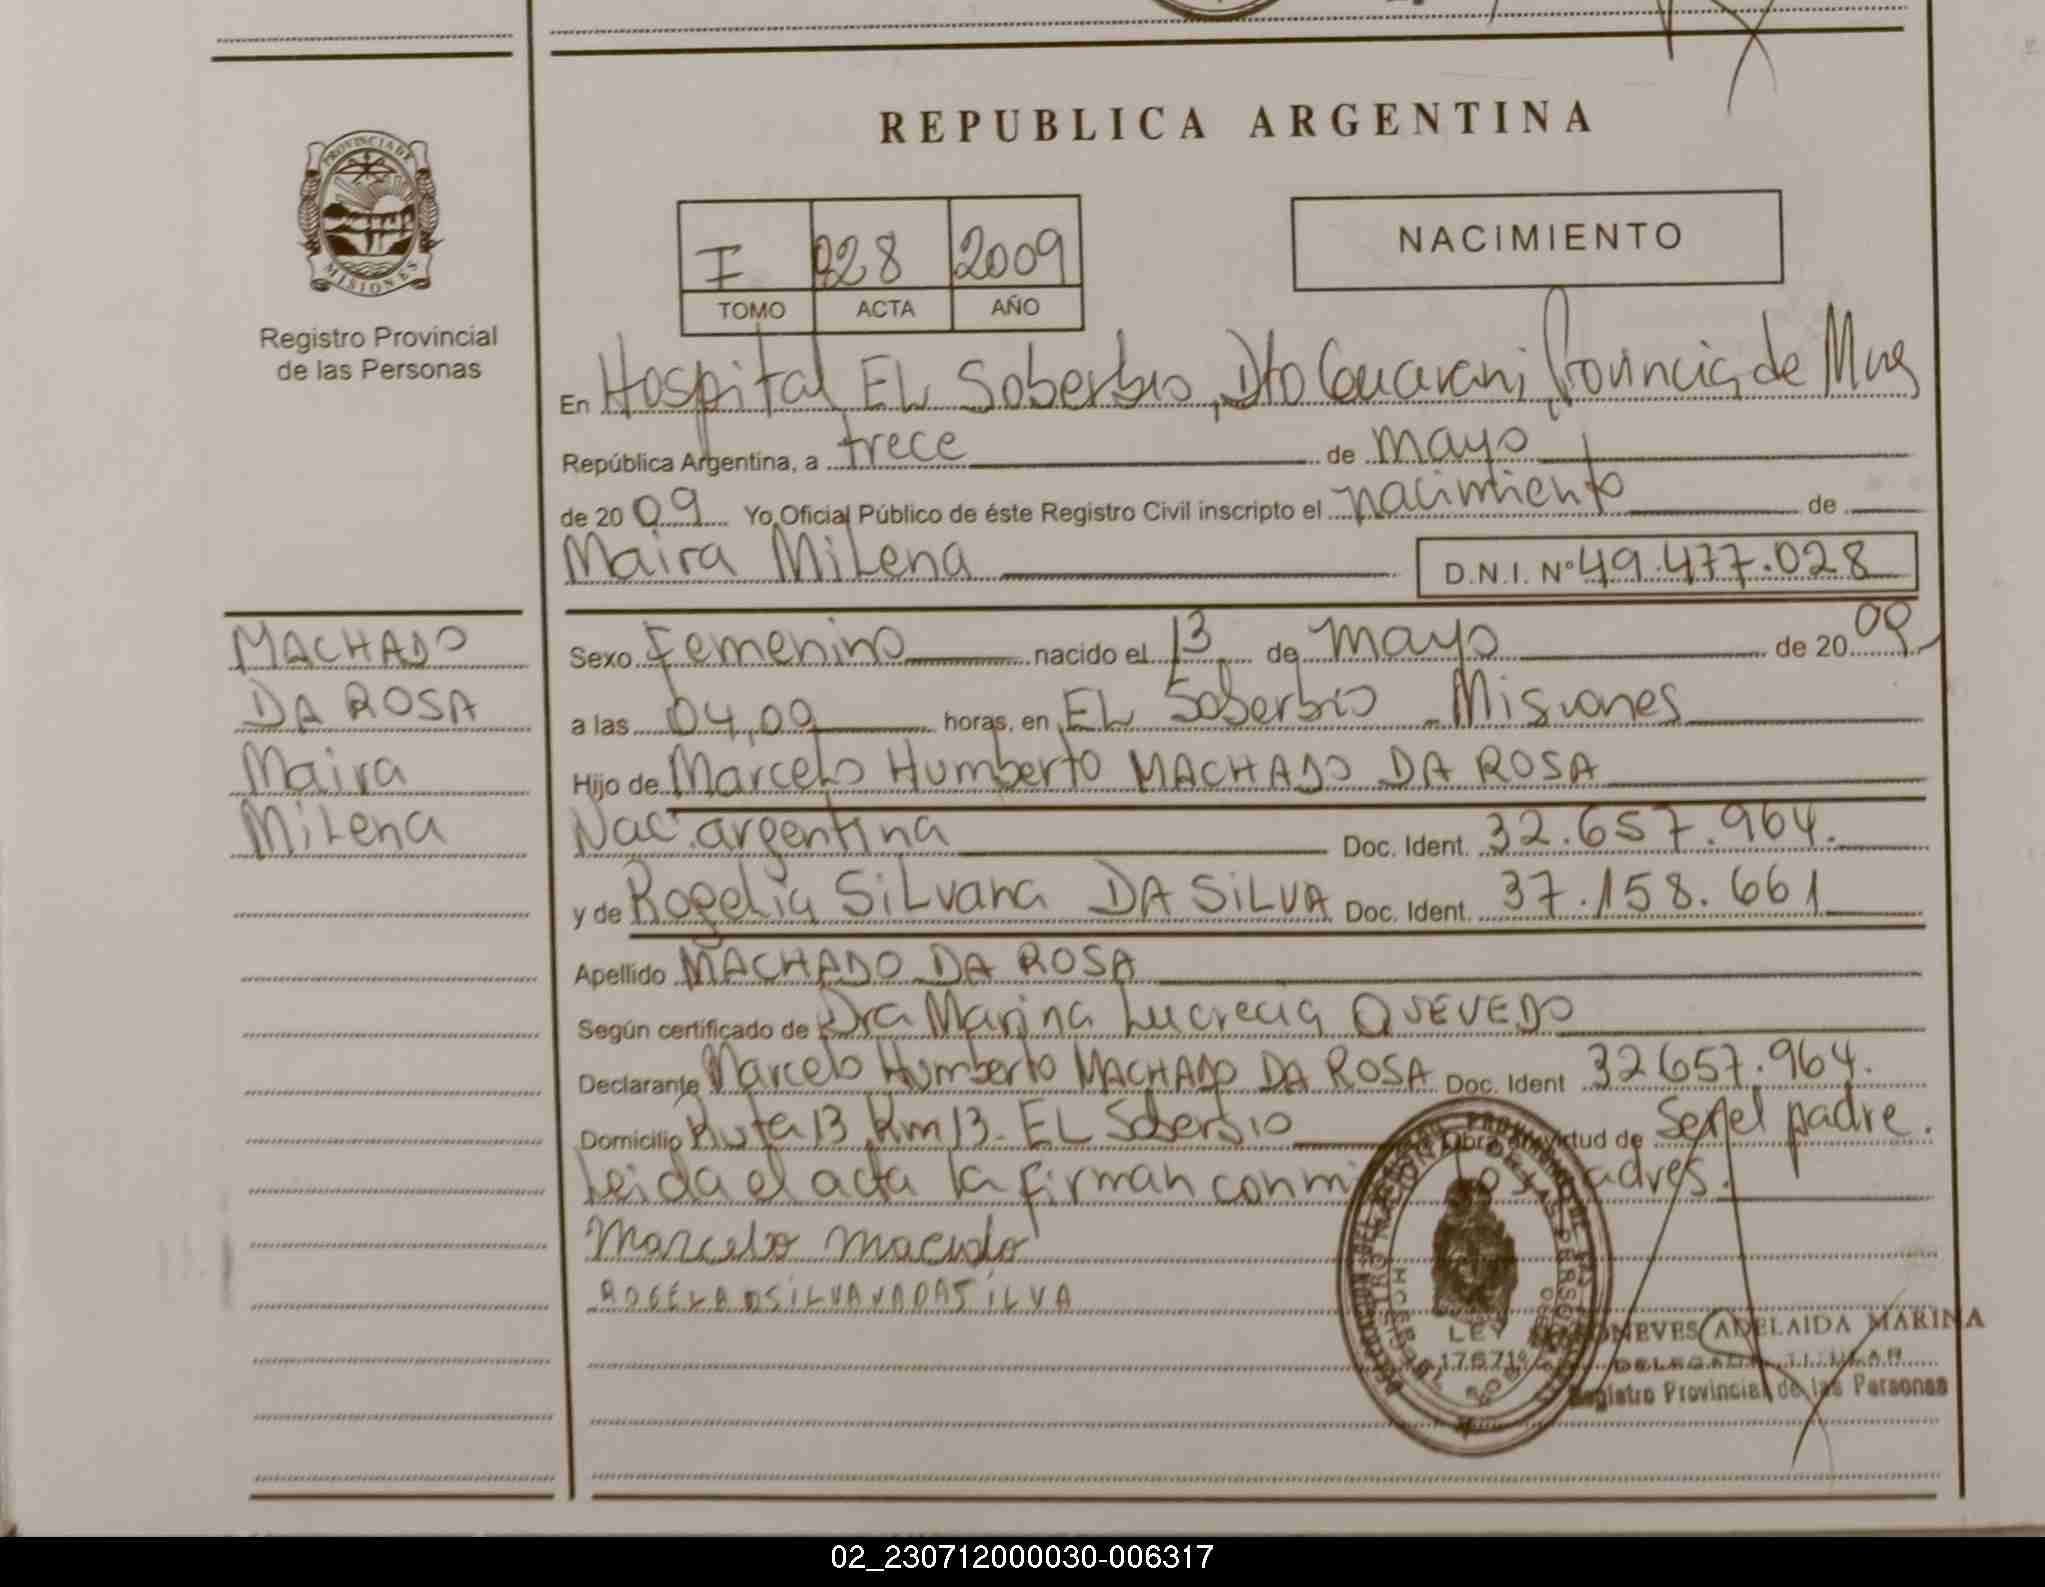 REPUBLICA ARGENTINA
PROVINCIA DE
MISIONES
Registro Provincial
de las Personas
I 028 2009
TOMO ACTA AÑO
NACIMIENTO
En Hospital EL Soberbio, Dto Guarani, Provincia de Mnes
República Argentina, a trece de mayo
de 2009 Yo Oficial Público de éste Registro Civil inscripto el nacimiento de
Maira Milena D.N.I. Nº 49.477.028
MACHADO
DA ROSA
Maira
Milena
Sexo Femenino nacido el 13 de mayo de 2009
a las 04,00 horas, en EL Soberbio Misiones
Hijo de Marcelo Humberto MACHADO DA ROSA
Nac. argentina Doc. Ident. 32.657.964.
y de Rogelia Silvana DA SILVA Doc. Ident. 37.158.661
Apellido MACHADO DA ROSA
Según certificado de Dra Marina Lucrecia QUEVEDO
Declarante Marcelo Humberto MACHADO DA ROSA Doc. Ident 32657.964.
Domicilio Ruta 13 Km 13. EL Soberbio Obra en virtud de Ser el padre.
Leida el acta la firman conmi padres.
Marcelo
LEY
17671
NEVES ADELAIDA MARINA
DELEGADA TITULAR
Registro Provincial de las Personas
02_230712000030-006317